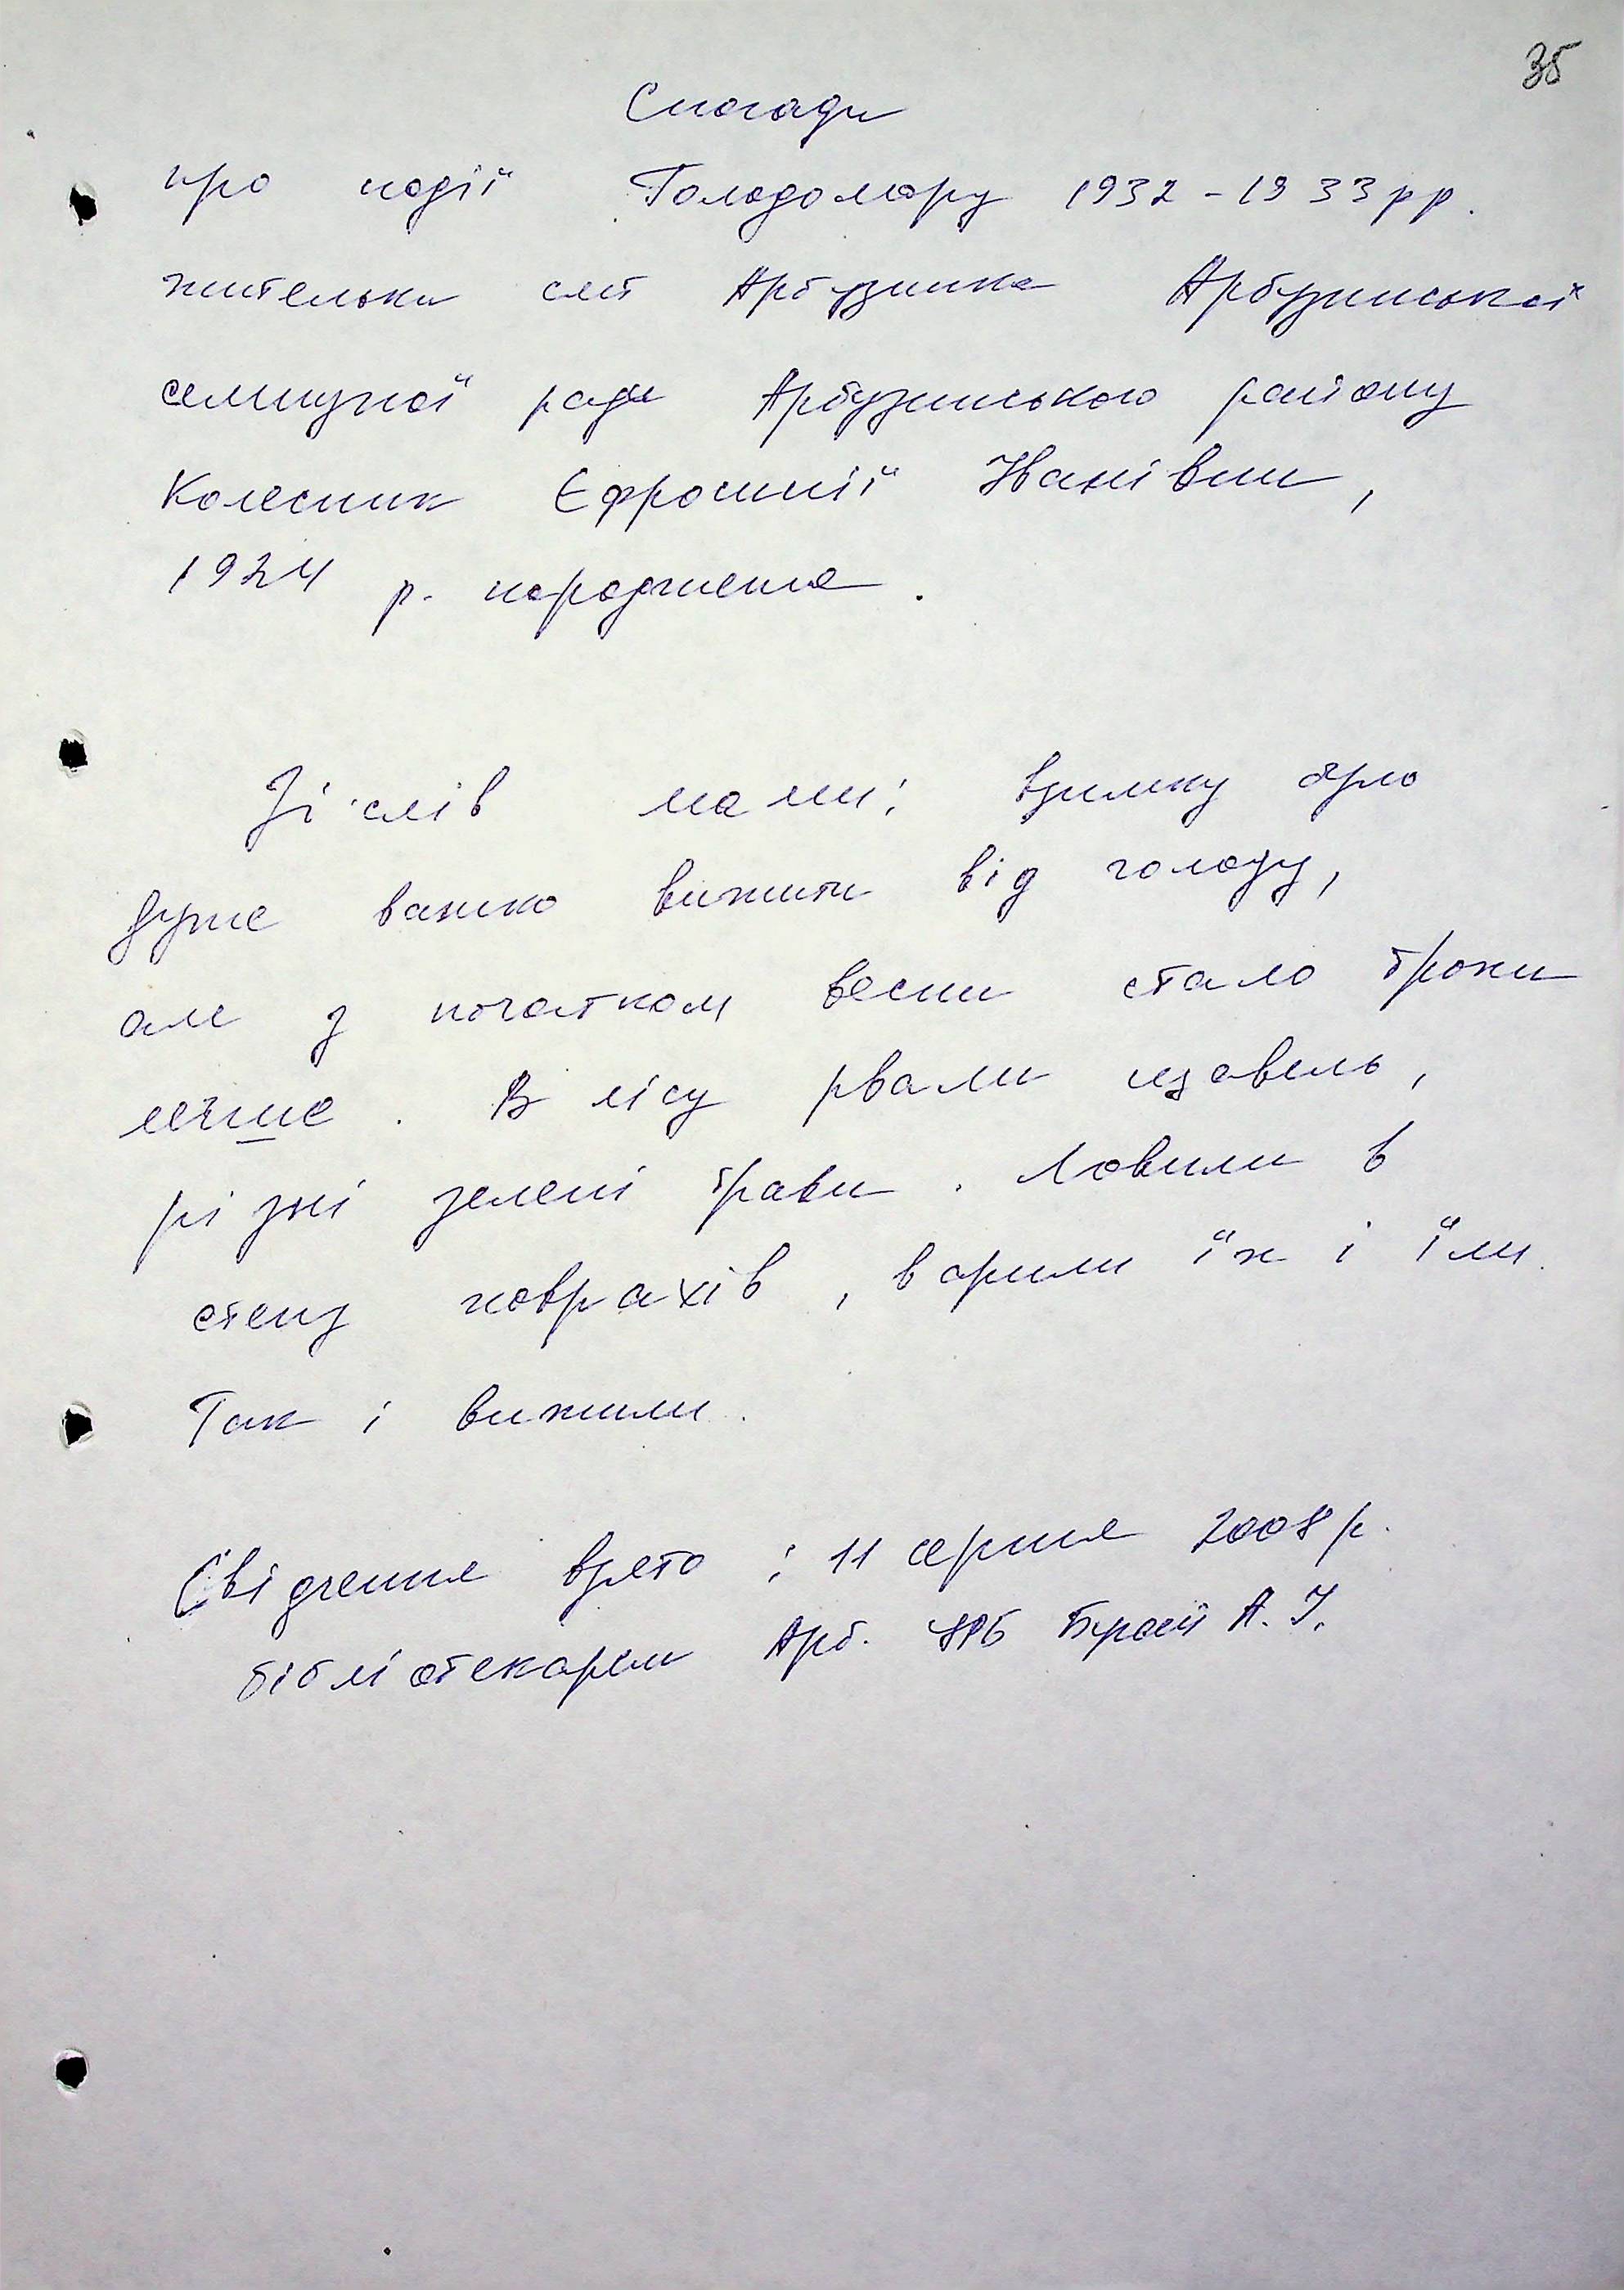 35
Спогади
про події Голодомору 1932-1933рр.
жительки смт Арбузинка Арбузинської
селищної ради Арбузинського району
Колесник Єфросинії Іванівни,
1924 р. народження.
Зі слів мами: взимку було
дуже важко вижити від голоду,
але з початком весни стало трохи
легше. В лісу рвали щавель,
різні зелені трави. Ловили в
степу ховрахів, варили їх і їли.
Так і вижили.
Свідчення взято: 11 серпня 2008р.
бібліотекарем Арб. ЦРБ А. І.